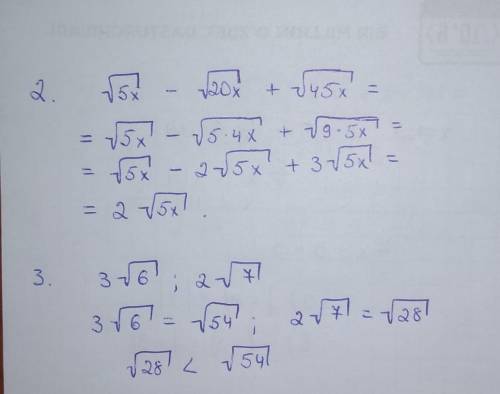 2. √5x − √20x + √45x =
= √5x − √5·4x + √9·5x =
= √5x − 2√5x + 3√5x =
= 2√5x .
3. 3√6 ; 2√7
3√6 = √54 ; 2√7 = √28
√28 < √54